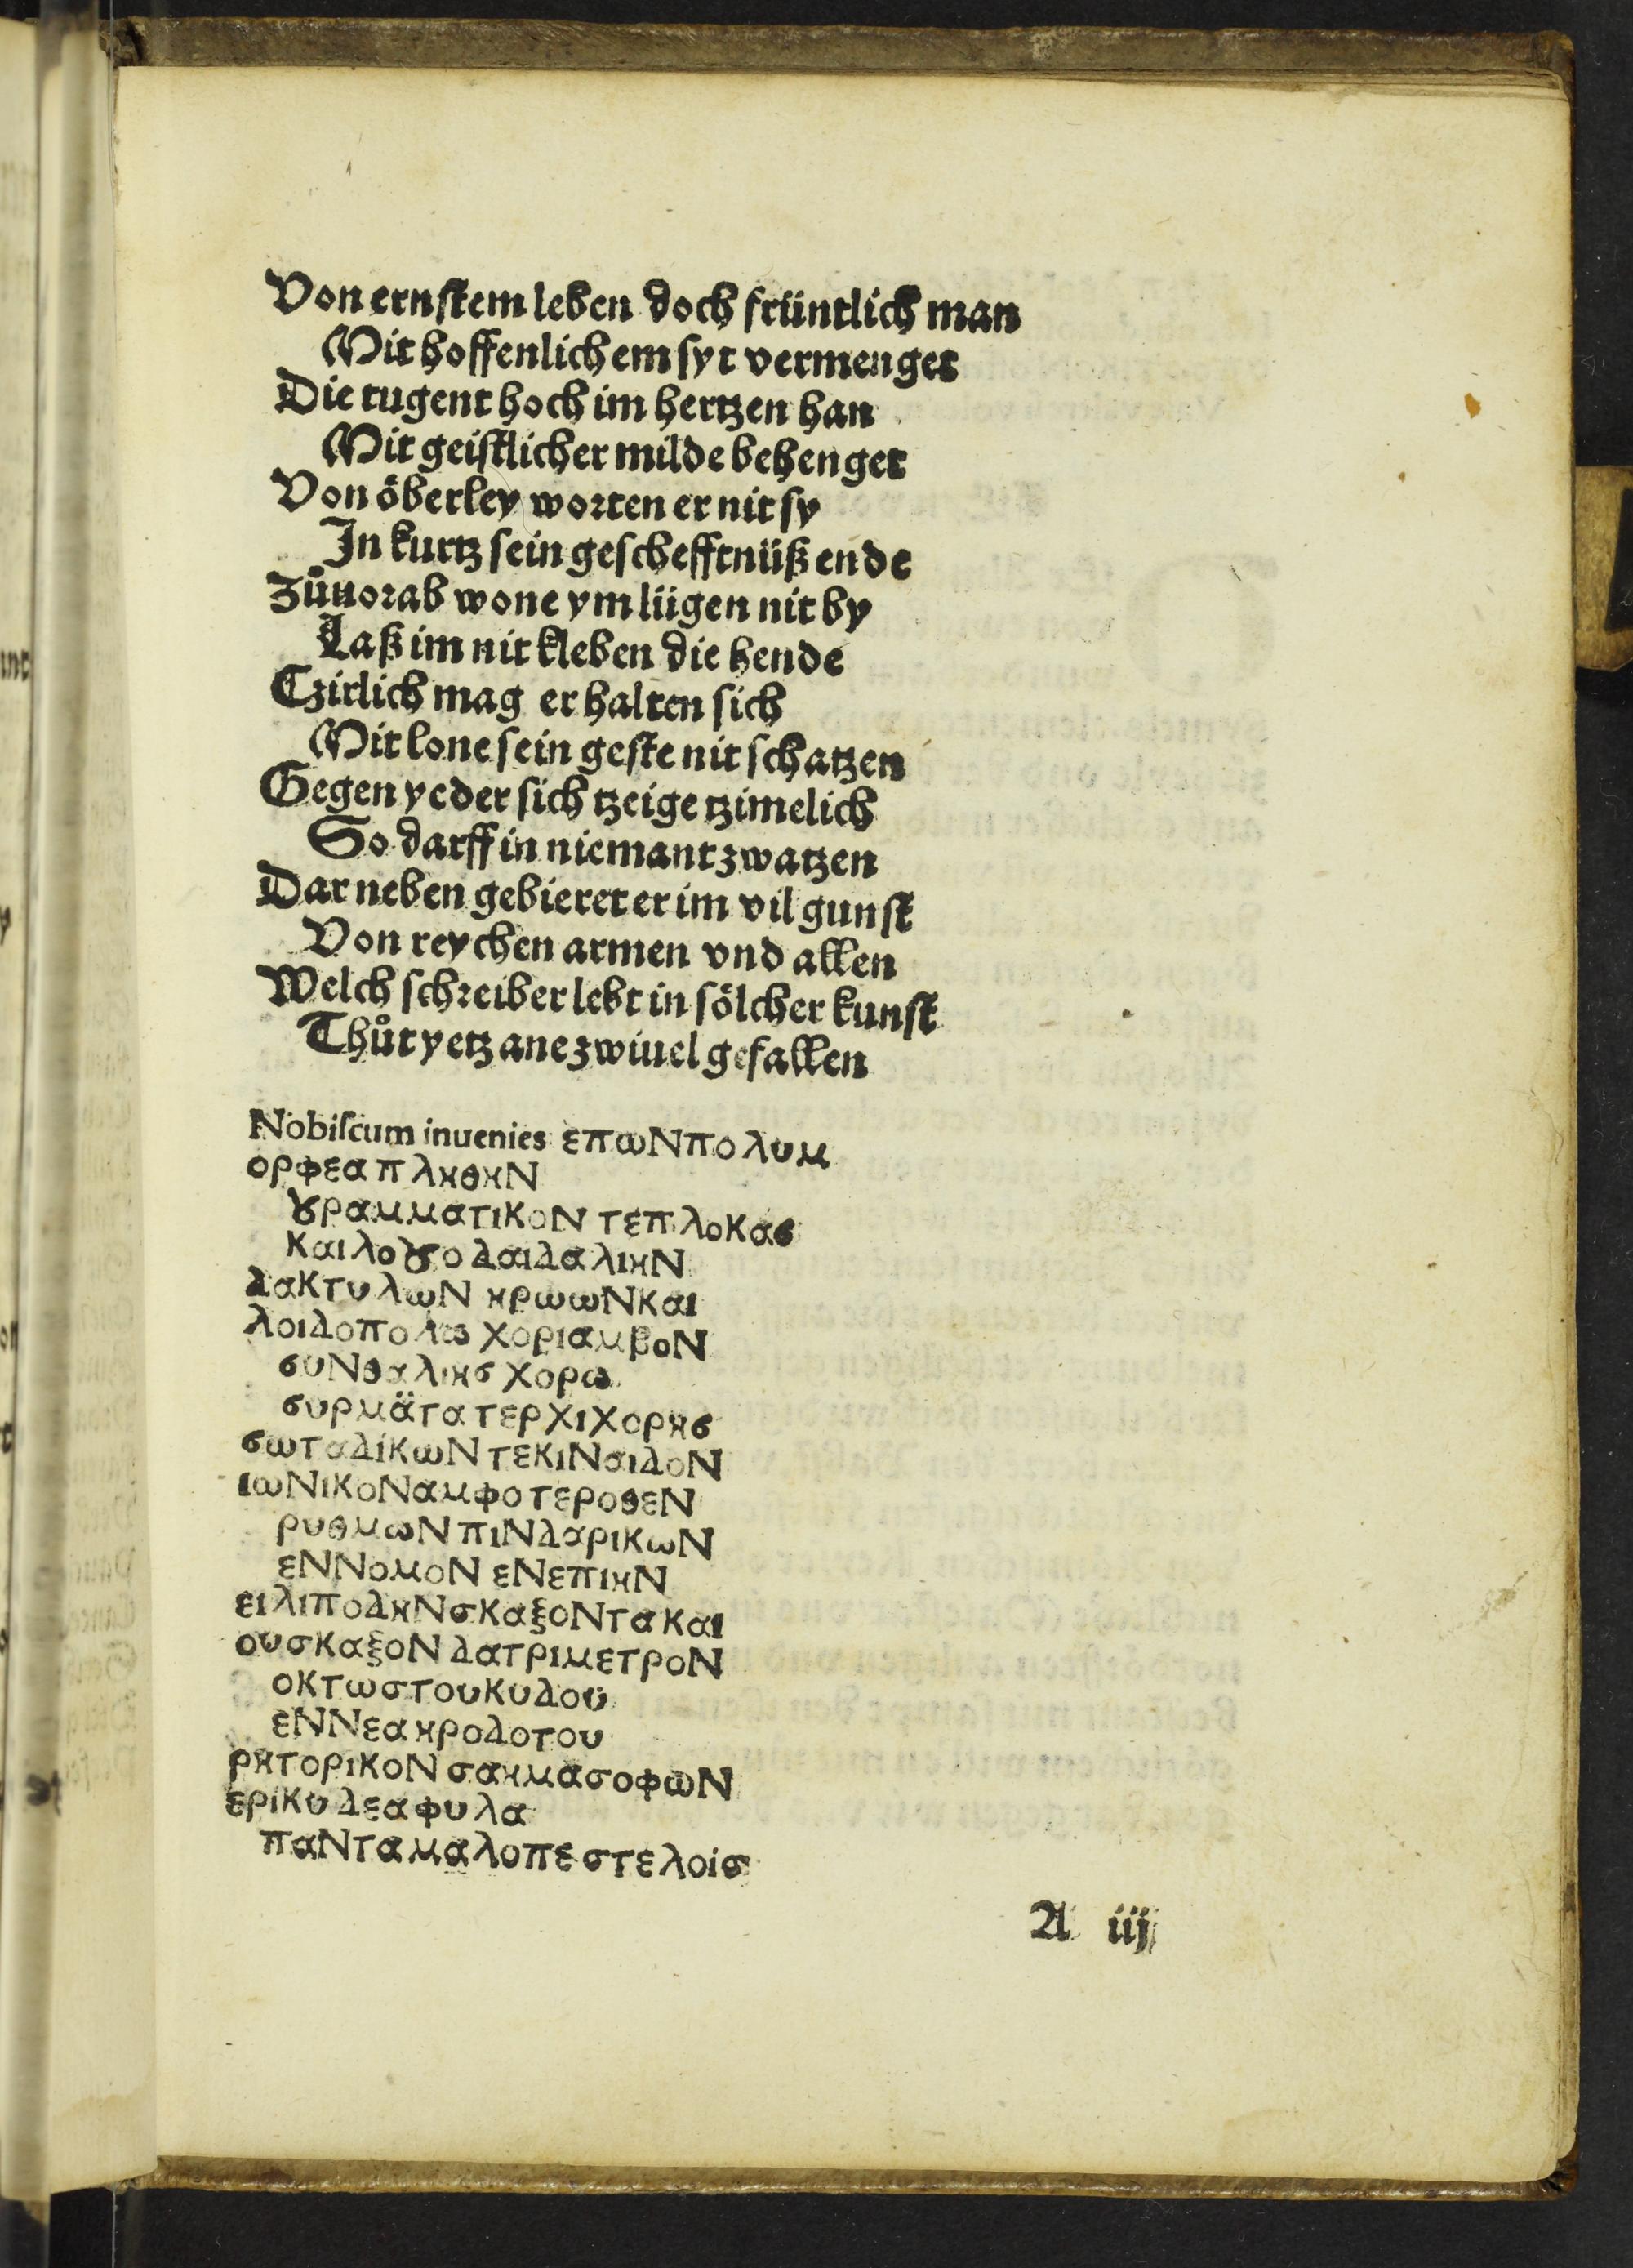 Von ernſtem leben doch früntlich man
Mit hoffenlichem ſyt vermenget
Die tugent hoch im hertzen han
Mit geiſtlicher milde behenget
Von öberley worten er nit ſy
In kurtz ſein geſchefftnüß ende
Zůuorab wone ym lügen nit by
Laß im nit kleben die hende
Tzirlich mag er halten ſich
Mit lone ſein geſte nit ſchatzen
Gegen yeder ſich tzeige tzimelich
So darff in niemant zwatzen
Dar neben gebieret er im vil gunſt
Von reychen armen vnd allen
Welch ſchreiber lebt in ſölcher kunſt
Thůt yetz ane zwiuel gefallen
Nobiſcum inuenies επωΝ πολυμ
ορφεα πληθηΝ
γραμματικοΝ τεπλοκας
και λογο δαιδαλιηΝ
δακτυλωΝ ηρωωΝ και
λοιδοπολω χοριαμβοΝ
συΝθαλιησ χορω
συρμäτα τερχιχορησ
σωταδίκωΝ τεκιΝαιδοΝ
ιωΝικοΝ αμφοτεροθεΝ
ρυθμωΝ πιΝδαρικωΝ
εΝΝομοΝ εΝεπιηΝ
ειλιποδηΝ σκαξοΝτα και
ουσκαξοΝδα τριμετροΝ
οκτωστουκυδοϋ
εΝΝεα ηροδοτου
ρητορικοΝ σαημασοφωΝ
ερίκυδεα φυλα
παΝτα μαλοπεστελοίσ
A iij